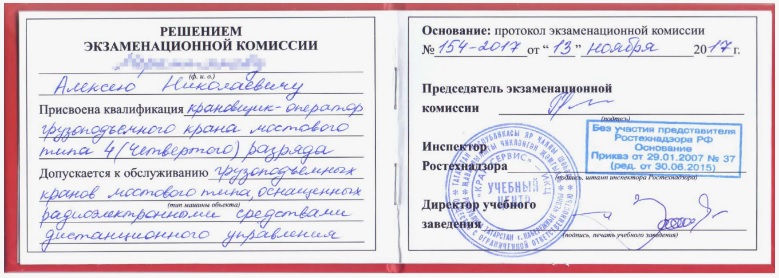 РЕШЕНИЕМ
ЭКЗАМЕНАЦИОННОЙ КОМИССИИ
(ф. и. о.)
Алексею Николаевичу
Присвоена квалификация крановщик-оператор
грузоподъемного крана мостового
типа 4 (четвертого) разряда
Допускается к обслуживанию грузоподъемных
кранов мостового типа, оснащенных
(тип машины объекта)
радиоэлектронными средствами
дистанционного управления
Основание: протокол экзаменационной комиссии
№ 154-2017 от “ 13 ” ноября 2017 г.
Председатель экзаменационной
комиссии
(подпись)
Инспектор
Ростехнадзора
(подпись, штамп инспектора Ростехнадзора)
Без участия представителя
Ростехнадзора РФ
Основание
Приказ от 29.01.2007 № 37
(ред. от 30.06.2015)
"КРАНСЕРВИС"
УЧЕБНЫЙ
ЦЕНТР
Директор учебного
заведения
(подпись, печать учебного заведения)